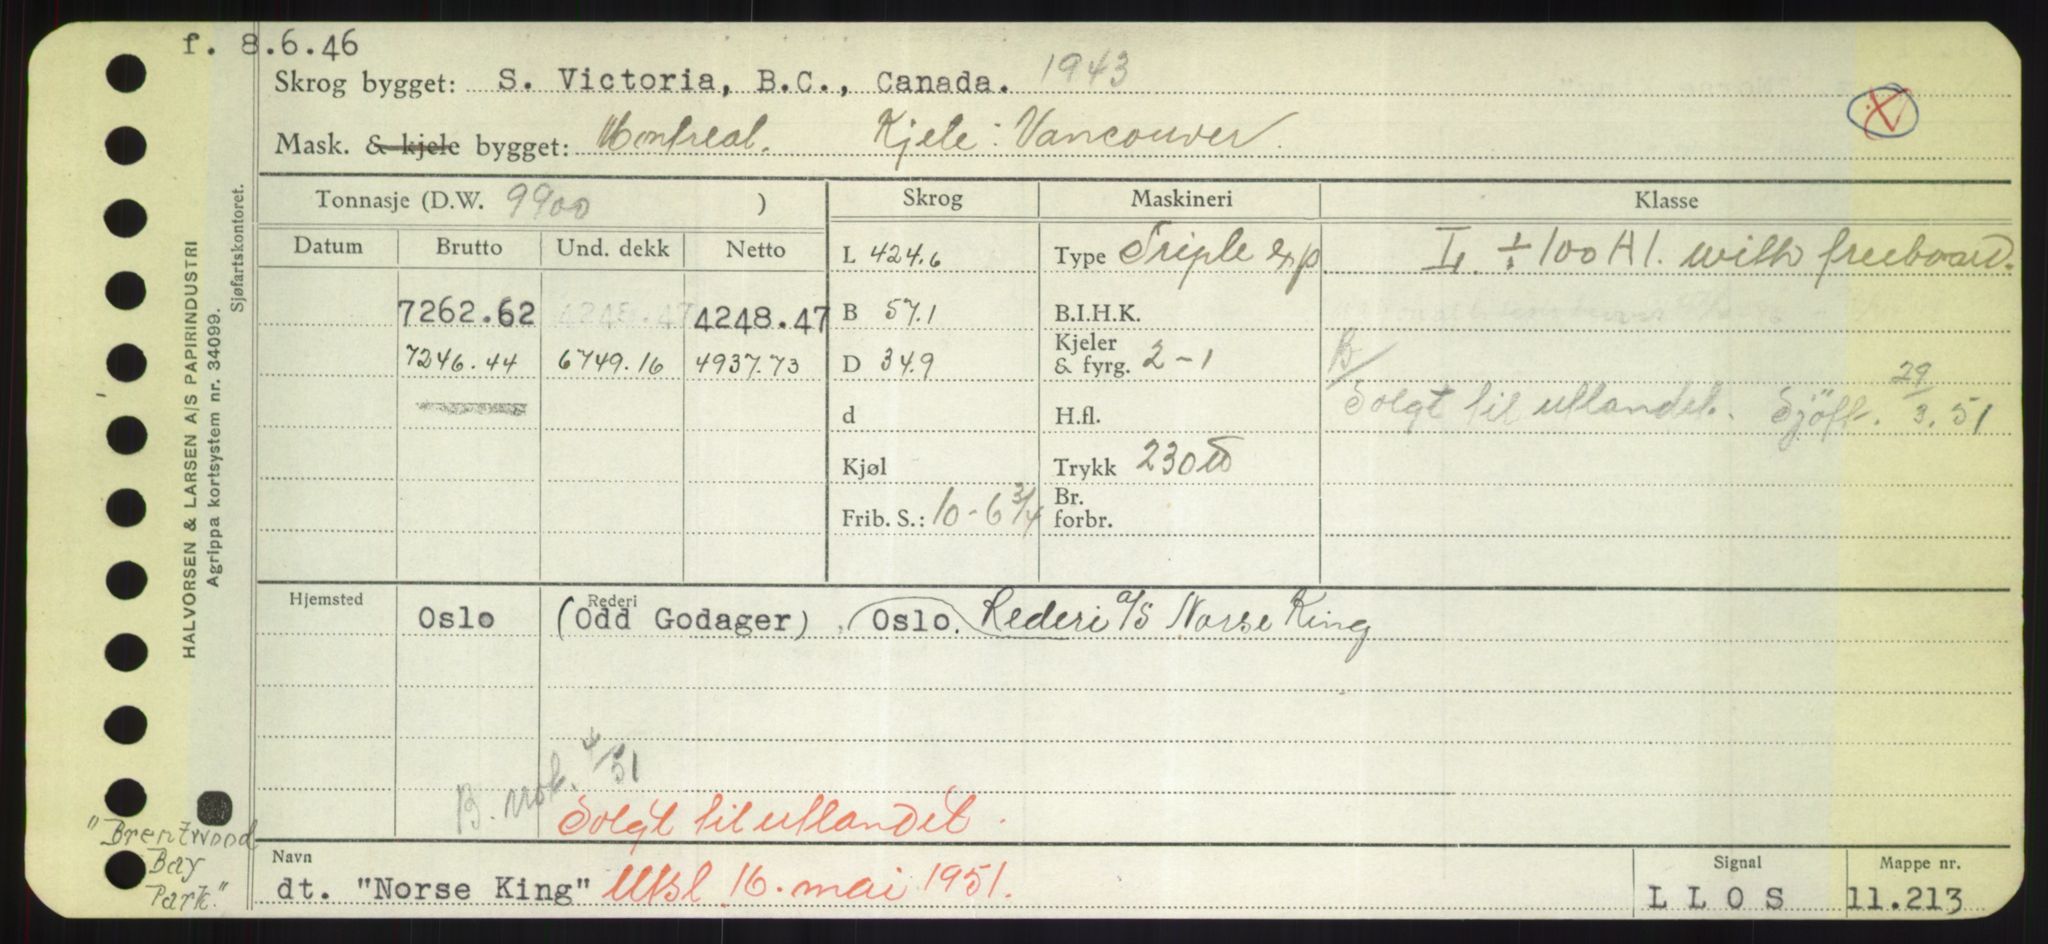 f. 8.6.46
Skrog bygget: S. Victoria, B.C., Canada. 1943
Mask. & kjele bygget: Montreal. Kjele: Vancouver.
Tonnasje (D.W. 9900 ) Skrog Maskineri Klasse
Datum Brutto Und. dekk Netto L 424.6 Type Triple exp I. ÷ 100 A 1. with freeboard.
7262.62 4248.47 4248.47 B 57.1 B.I.H.K.
7246.44 6749.16 4937.73 D 34.9 Kjeler & fyrg. 2-1
d H.fl. Solgt til utlandet. Sjöft. 29/3.51
Kjøl Trykk 230
Frib. S.: 10-6 3/4 Br. forbr.
Hjemsted Rederi
Oslo (Odd Godager), Oslo. Rederi a/s Norse King
B. 4/51
Solgt til utlandet.
Navn Signal Mappe nr.
dt. "Norse King" Utsl. 16. mai 1951. L L O S 11.213
"Brentwood
Bay
Park."
HALVORSEN & LARSEN A/S PAPIRINDUSTRI
Agrippa kortsystem nr. 34099.
Sjøfartskontoret.